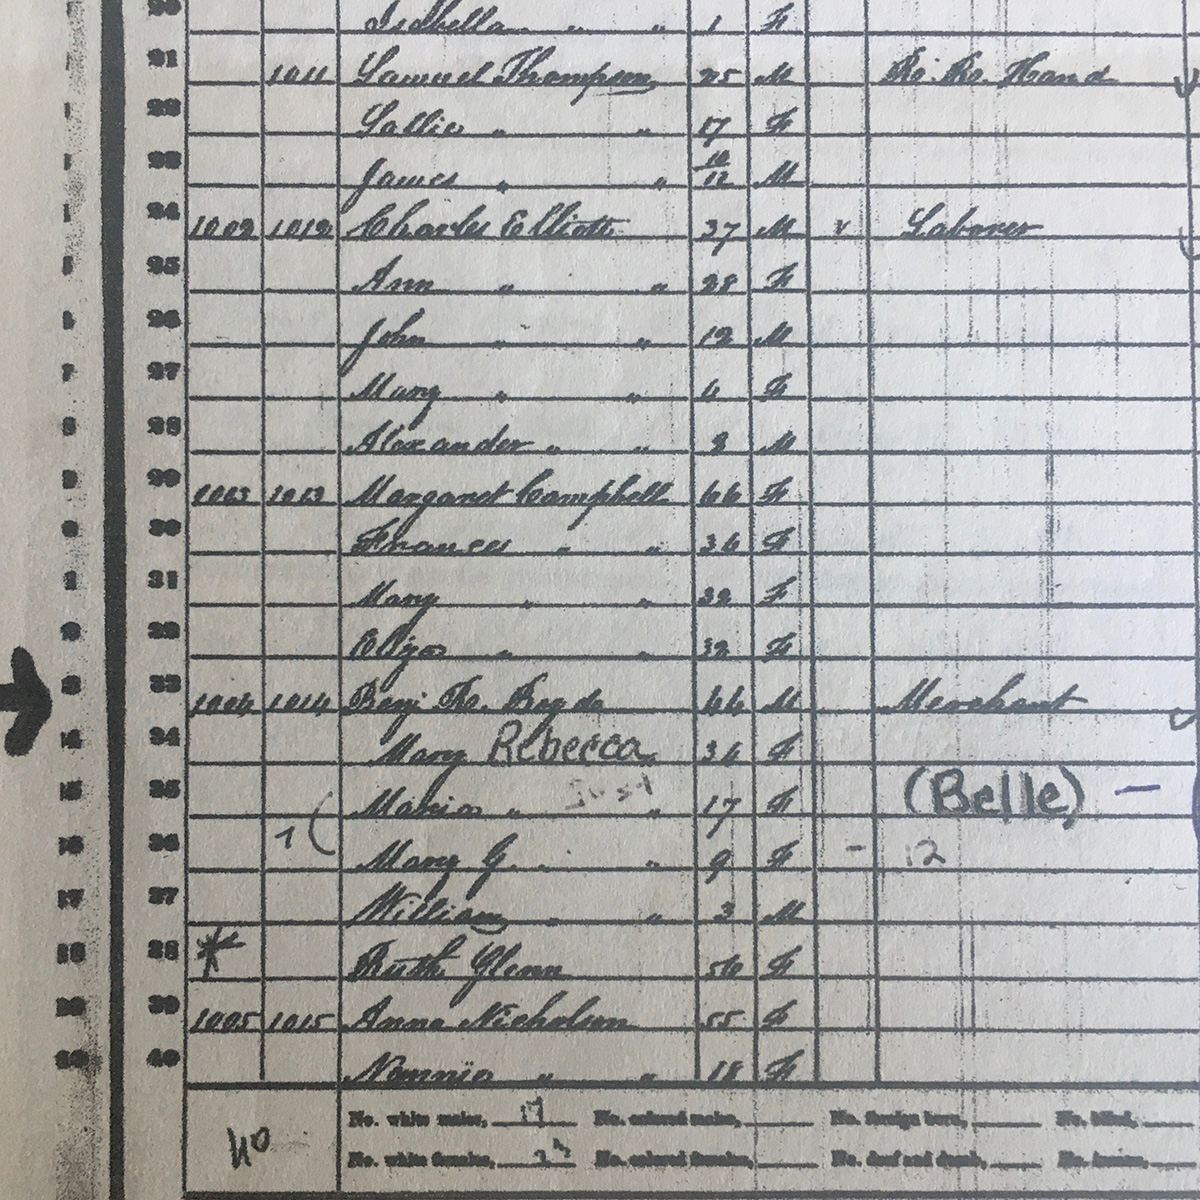 Isabella " " 1 F
21 1011 Samuel Thompson 25 M Ro. Ro. Hand
22 Sallie " " 17 F
23 James " " 10/12 M
24 1002 1012 Charles Elliott 37 M Laborer
25 Ann " " 28 F
26 John " 12 M
27 Mary " " 6 F
28 Alexander " " 3 M
29 1003 1013 Margaret Campbell 66 F
30 Frances " " 36 F
31 Mary " " 32 F
32 Eliza " " 32 F
33 1004 1014 Benj. Ro. Boyds 46 M Merchant
34 Mary Rebecca " 36 F
35 Maria " " 17 F (Belle) —
36 Mary G. " " 9 F - 12
37 William " " 3 M
38 * Ruth Glenn 56 F
39 1005 1015 Anna Nicholson 55 F
40 Nannie " " 18 F
No. white males, 17 No. colored males, No. foreign born, No. blind,
40
No. white females, No. colored females, No. deaf and dumb, No. insane,